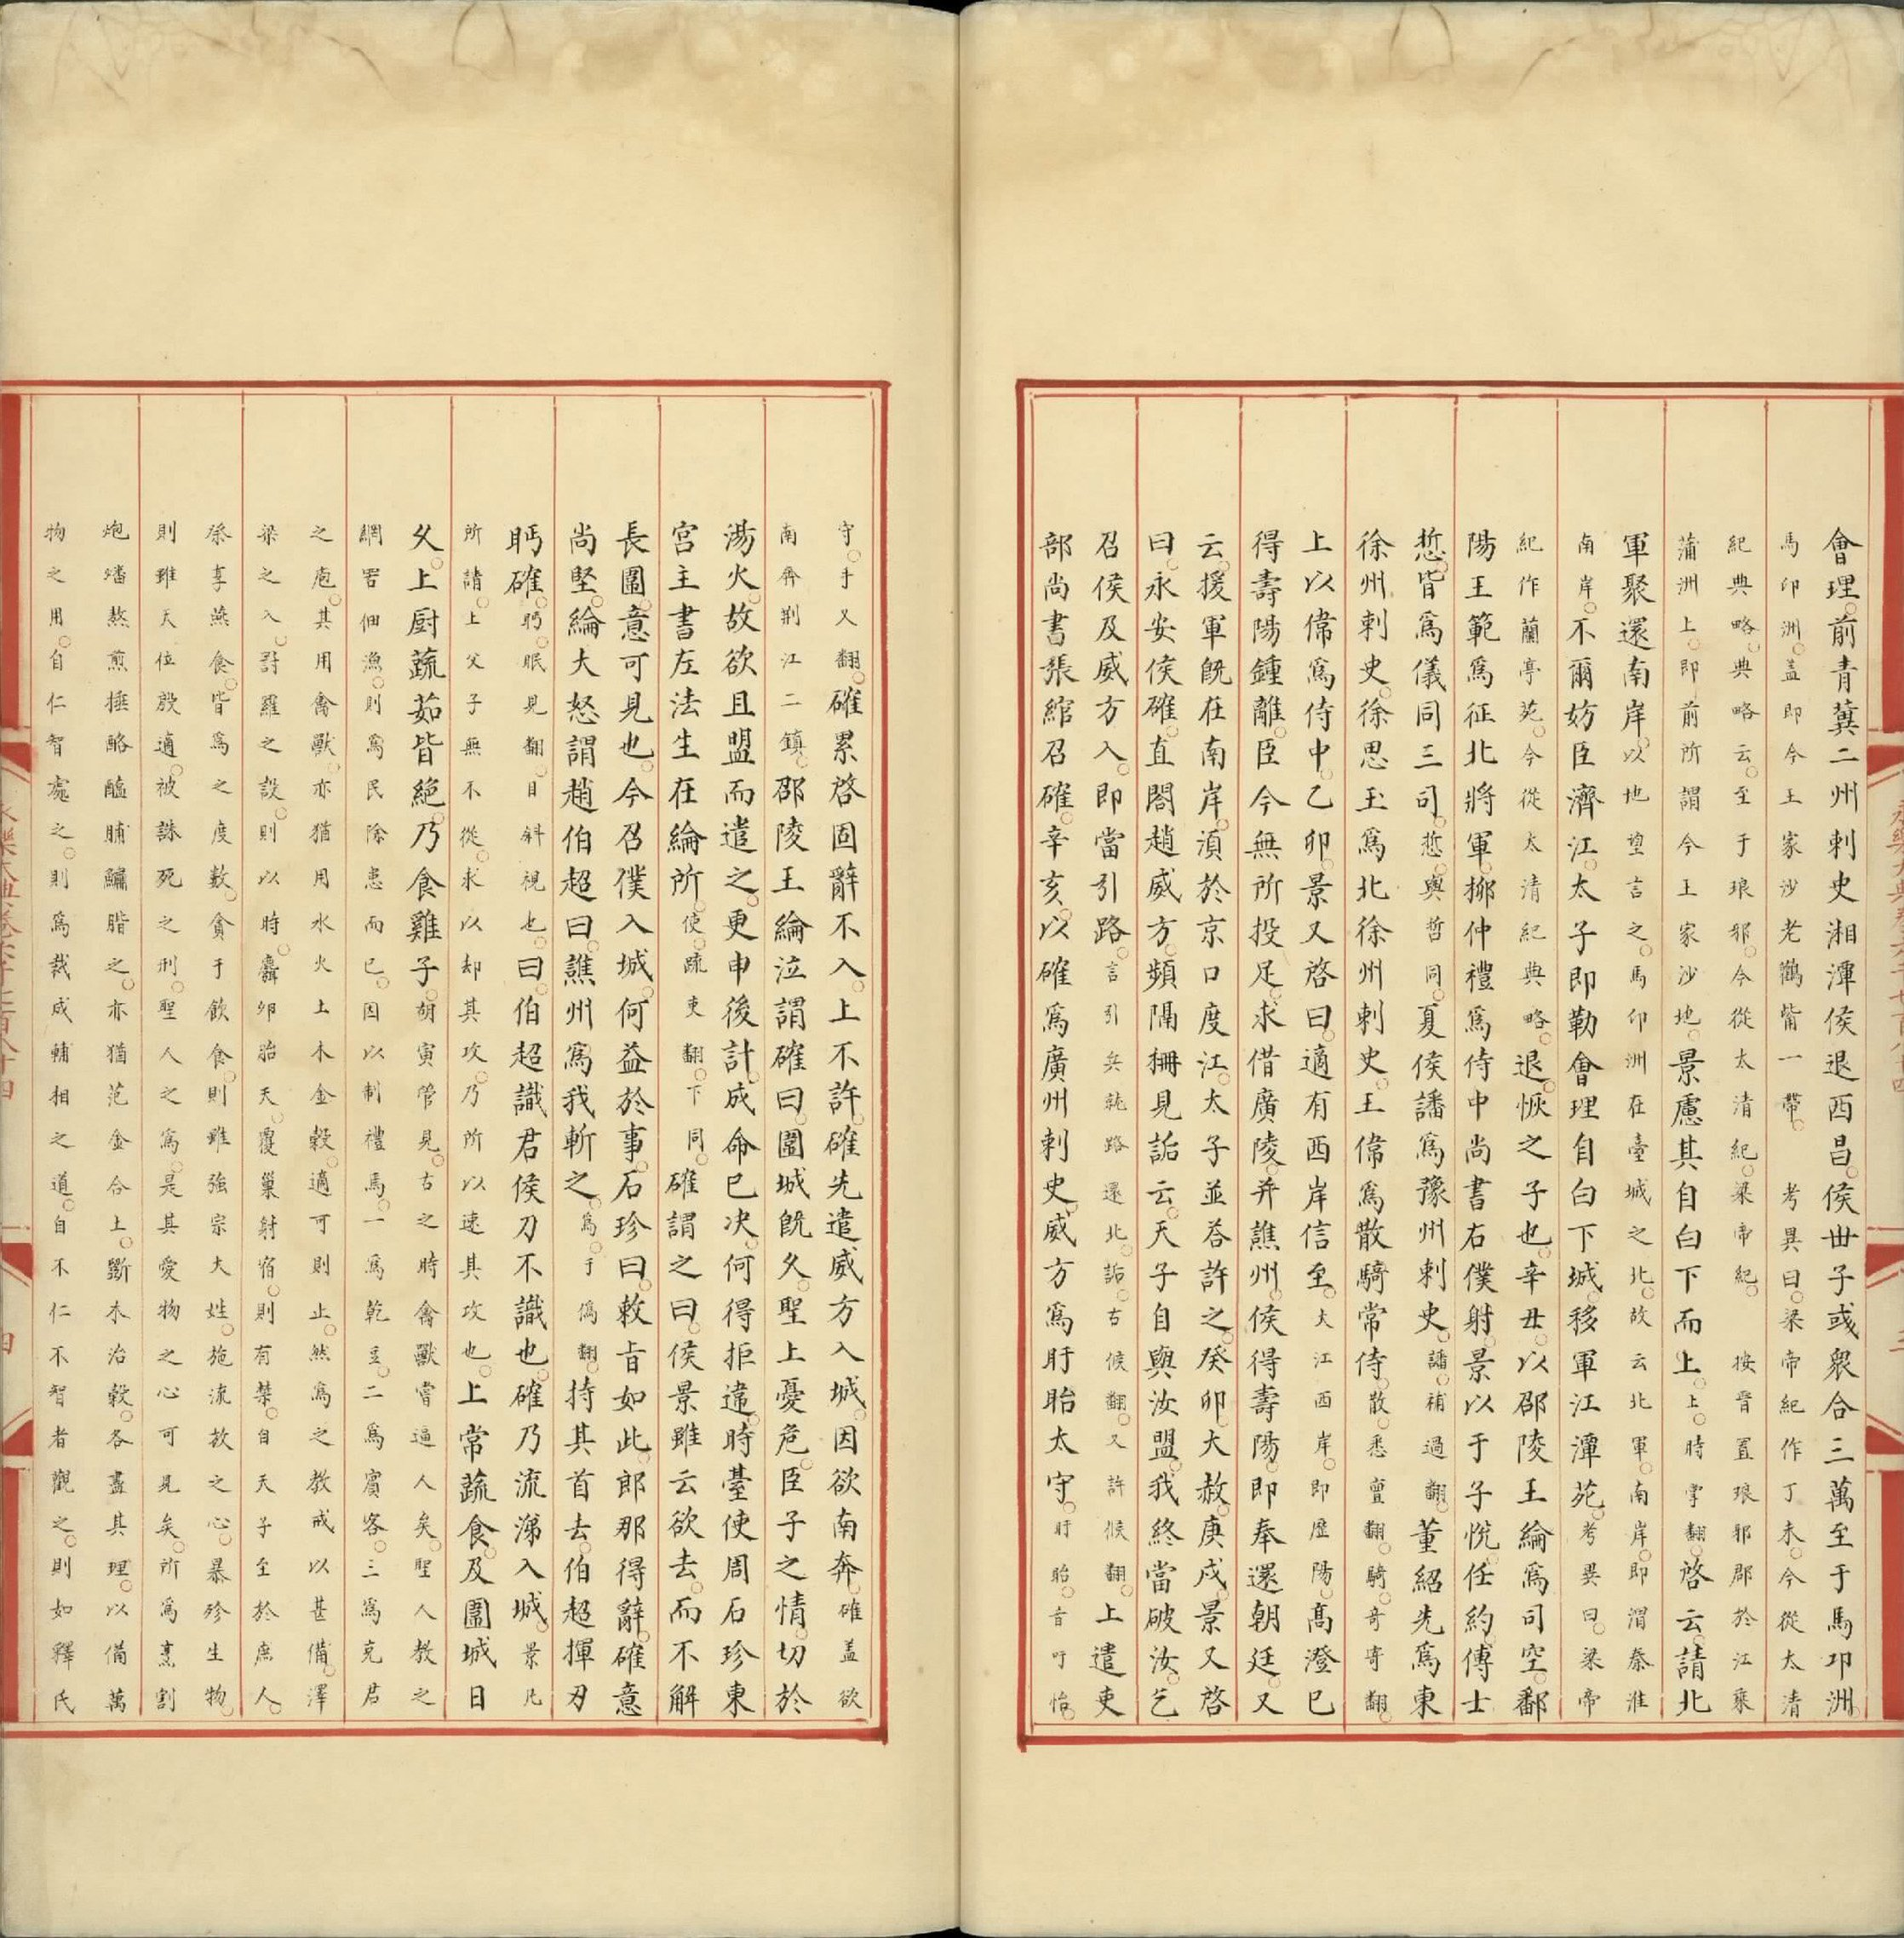 會理。前青冀二州刺史湘潭侯退西昌。侯世子彧衆合三萬至于馬卬洲。
馬卬洲。盖即今王家沙老鸛觜一帶。考異曰。梁帝紀作丁未。今從太清
紀典略。典略云。至于琅邪。今從太清紀。梁帝紀。按晉置琅邪郡於江乘
蒲洲上。即前所謂今王家沙地。景慮其自白下而上。上。時掌翻。啓云。請北
軍聚還南岸。以地望言之。馬卬洲在臺城之北。故云北軍。南岸。即渭秦淮
南岸。不爾妨臣濟江。太子即勒會理自白下城。移軍江潭苑。考異曰。梁帝
紀作蘭亭苑。今從太清紀典略。退。恢之子也。辛丑。以邵陵王綸爲司空。鄱
陽王範爲征北將軍。桺仲禮爲侍中尚書右僕射。景以于子悦任約傅士
悊。皆爲儀同三司。悊。與哲同。夏侯譒爲豫州刺史。譒。補過翻。董紹先爲東
徐州刺史。徐思玉爲北徐州刺史。王偉爲散騎常侍。散。悉亶翻。騎。奇寄翻。
上以偉爲侍中。乙卯。景又啓曰。適有西岸信至。大江西岸。即歷陽。髙澄已
得壽陽鍾離。臣今無所投足。求借廣陵。并譙州。侯得壽陽。即奉還朝廷。又
云。援軍旣在南岸。湏於京口度江。太子並荅許之。癸卯。大赦。庚戌。景又啓
曰。永安侯確。直閤趙威方。頻隔栅見詬云。天子自與汝盟。我終當破汝。乞
召侯及威方入。即當引路。言引兵就路還北。詬。古候翻。又許候翻。上遣吏
部尚書張綰召確。辛亥。以確爲廣州刺史。威方爲盱眙太守。盱眙。音吁怡。
守。手又翻。確累啓固辭不入。上不許。確先遣威方入城。因欲南奔。確盖欲
南奔荆江二鎮。邵陵王綸泣謂確曰。圍城旣久。聖上憂危。臣子之情。切於
湯火。故欲且盟而遣之。更申後計。成命已决。何得拒違。時臺使周石珍東
宫主書左法生在綸所。使。疏吏翻。下同。確謂之曰。侯景雖云欲去。而不解
長圍。意可見也。今召僕入城。何益於事。石珍曰。敕旨如此。郎那得辭。確意
尚堅。綸大怒謂趙伯超曰。譙州爲我斬之。爲。于僞翻。持其首去。伯超揮刃
眄確。眄。眠見翻。目斜視也。曰。伯超識君侯刀不識也。確乃流涕入城。景凡
所請。上父子無不從。求以却其攻。乃所以速其攻也。上常蔬食。及圍城日
久。上厨蔬茹皆絶。乃食雞子。胡寅管見。古之時禽獸嘗逼人矣。聖人教之
網罟佃漁。則爲民除患而已。因以制禮焉。一爲乾豆。二爲賓客。三爲充君
之庖。其用禽獸。亦猶用水火土木金穀。適可則止。然爲之教戒以甚備。澤
梁之入。罻羅之設。則以時。麛卵胎夭。覆巢射宿。則有禁。自天子至於庶人。
祭享燕食。皆爲之度數。貪于飲食。則雖强宗大姓。施流放之心。暴殄生物。
則雖天位殷適。被誅死之刑。聖人之爲。是其愛物之心可見矣。所爲烹割
炮燔熬煎捶酪醢脯鱐脂之。亦猶范金合土。斵木治穀。各盡其理。以備萬
物之用。自仁智處之。則爲裁成輔相之道。自不仁不智者觀之。則如釋氏